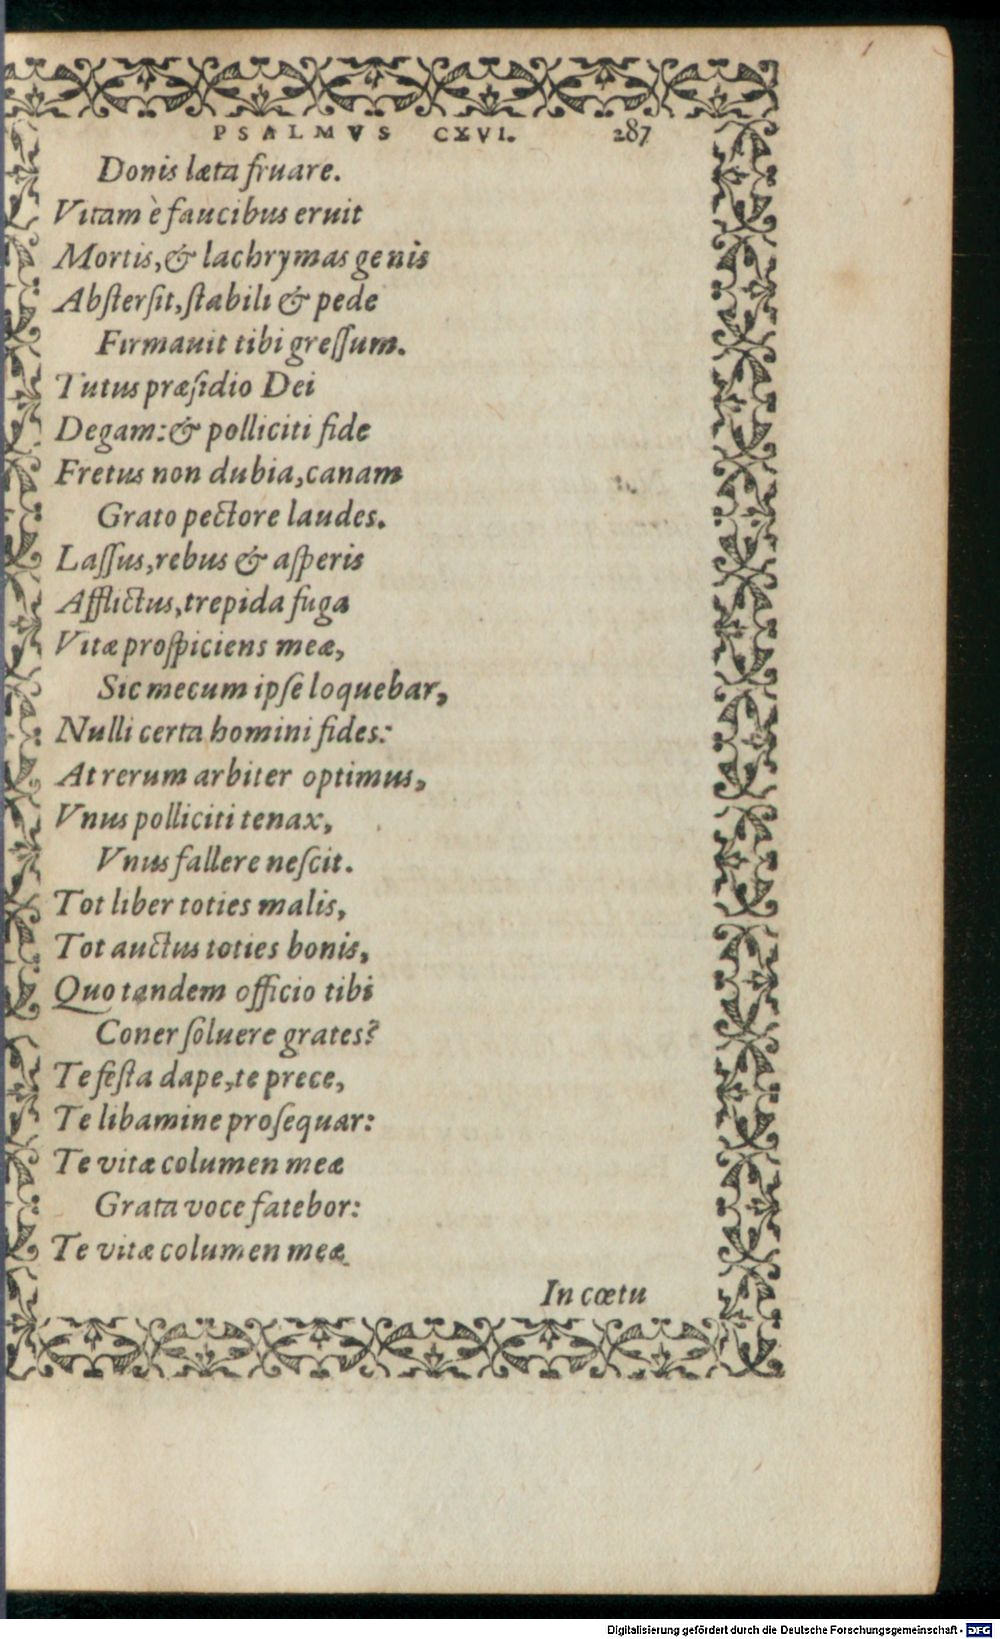 PSALMVS CXVI. 287
Donis læta fruare.
Vitam è faucibus eruit
Mortis, & lachrymas genis
Abstersit, stabili & pede
Firmauit tibi gressum.
Tutus præsidio Dei
Degam: & polliciti fide
Fretus non dubia, canam
Grato pectore laudes.
Lassus, rebus & asperis
Afflictus, trepida fuga
Vitæ prospiciens meæ,
Sic mecum ipse loquebar,
Nulli certa homini fides:
At rerum arbiter optimus,
Vnus polliciti tenax,
Vnus fallere nescit.
Tot liber toties malis,
Tot auctus toties bonis,
Quo tandem officio tibi
Coner soluere grates?
Te festa dape, te prece,
Te libamine prosequar:
Te vitæ columen meæ
Grata voce fatebor:
Te vitæ columen meæ
In cœtu
Digitalisierung gefördert durch die Deutsche Forschungsgemeinschaft - DFG